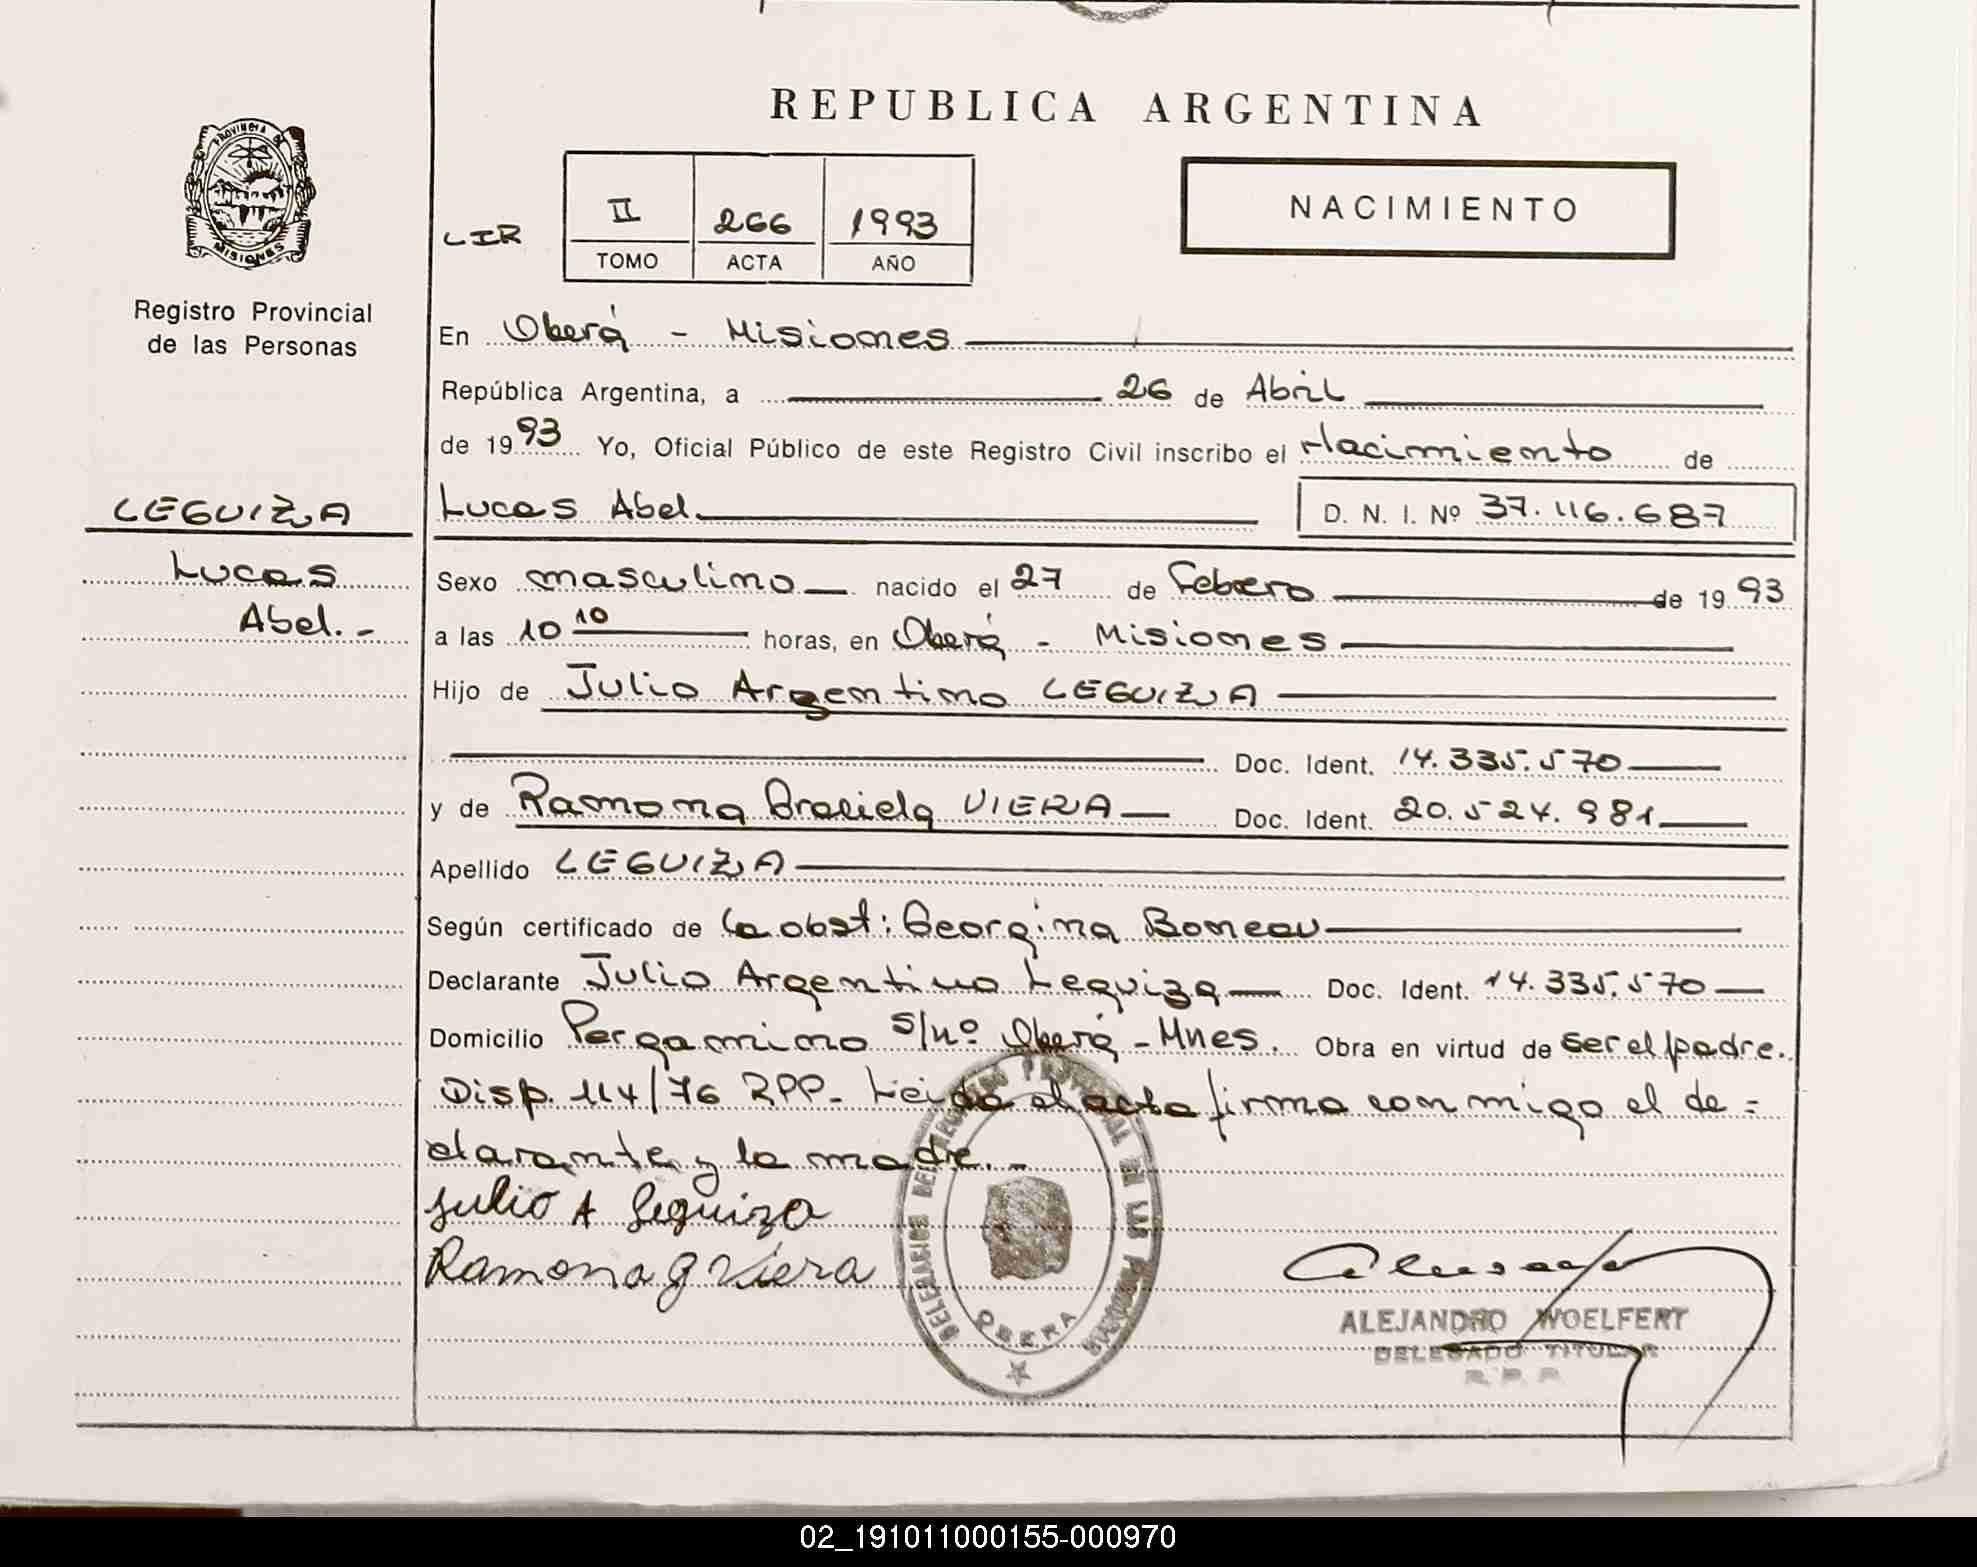 REPUBLICA ARGENTINA
PROVINCIA DE
MISIONES
Registro Provincial
de las Personas
II 266 1993
TOMO ACTA AÑO
NACIMIENTO
En Oberá - Misiones
República Argentina, a 26 de Abril
de 1993 Yo, Oficial Público de este Registro Civil inscribo el Nacimiento de
LEGUIZA
Lucas
Abel.-
Lucas Abel D. N. I. Nº 37.116.687
Sexo masculino nacido el 27 de Febrero de 1993
a las 10 10 horas, en Oberá - Misiones
Hijo de Julio Argentino LEGUIZA
Doc. Ident. 14.335.570
y de Ramona Graciela VIERA Doc. Ident. 20.524.981
Apellido LEGUIZA
Según certificado de la obst: Georgina Boneau
Declarante Julio Argentino Leguiza Doc. Ident. 14.335.570
Domicilio Pergamino s/nº Oberá - Mnes. Obra en virtud de ser el padre.
Disp. 114/76 RPP. Leida el acta firma conmigo el de=
clarante y la madre.-
Julio A Leguiza
Ramona G Viera
OBERA
ALEJANDRO WOELFERT
DELEGADO TITULAR
R. P. P.
02_191011000155-000970